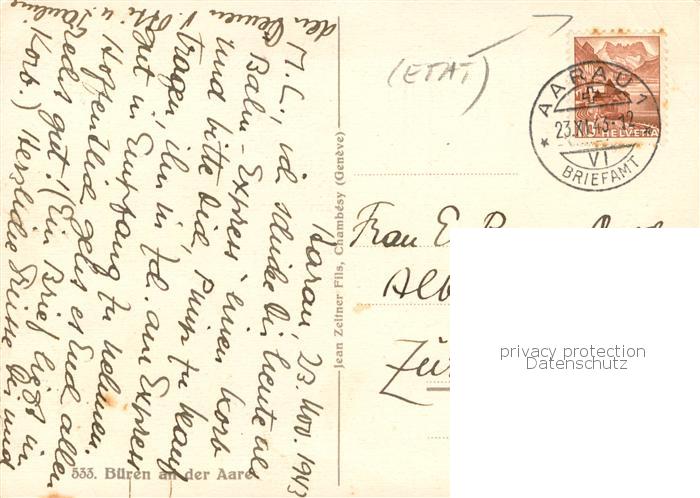 Aarau, 23. Nov. 1943
M. L., ich schicke Dir heute als
Bahn-Express einen Korb
und bitte Dich,
tragen, ihn in Zch. am Express
gut in Empfang zu nehmen.
Hoffentlich geht es Euch allen
redet gut! (Ein Brief liegt im
Korb.) Herzliche Grüsse Dir und
den Deinen v. u. Pauline
533. Büren an der Aare
Jean Zeltner Fils, Chambésy (Genève)
(ETAT)
AARAU 1
23.XI.43-12
VI
BRIEFAMT
HELVETIA
Frau E.
Alb
Zü
privacy protection
Datenschutz